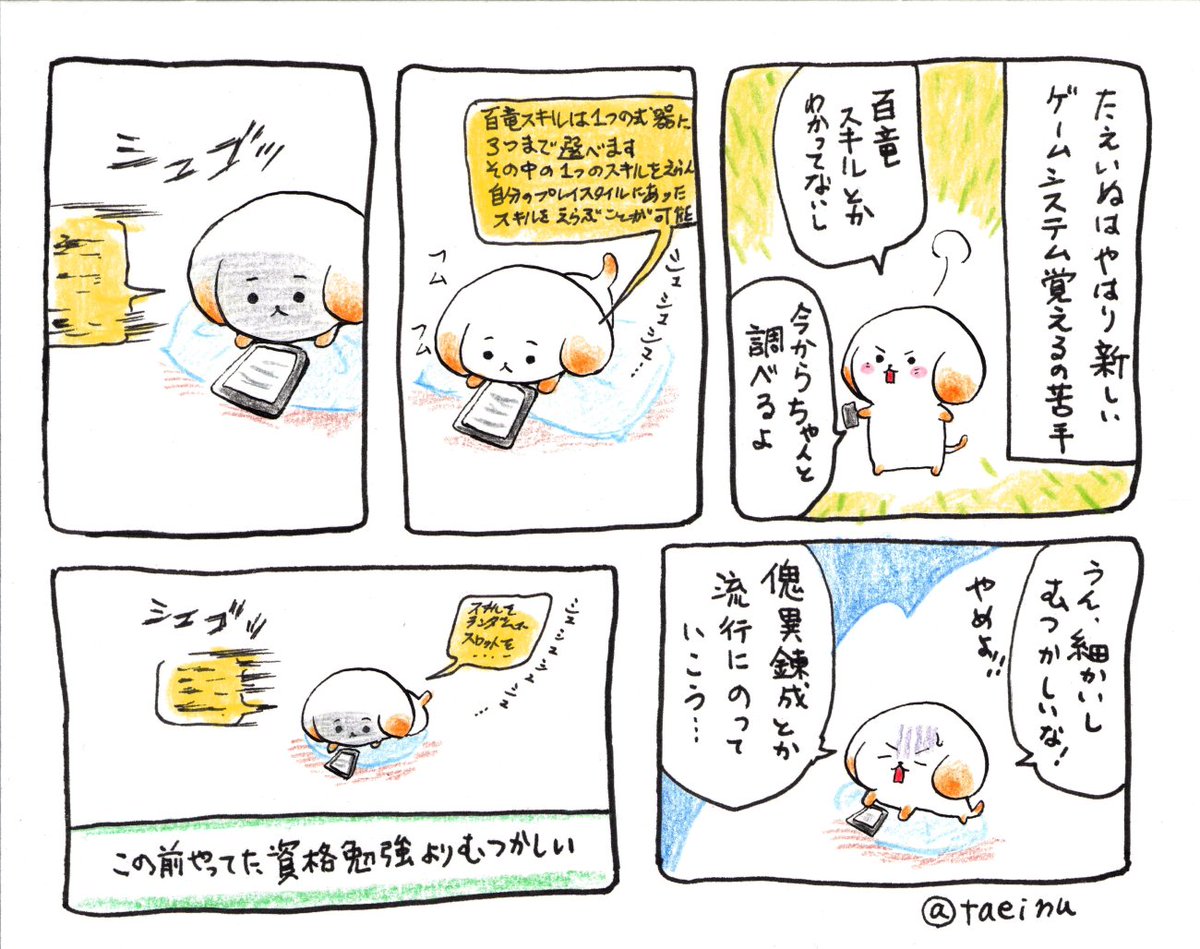 たえいぬはやはり新しい
ゲームシステム覚えるの苦手
百竜
スキルとか
わかってないし
今からちゃんと
調べるよ
百竜スキルは1つの武器に
3つまで選べます
その中の1つのスキルをえらん
自分のプレイスタイルにあった
スキルをえらぶことが可能
フム
フム
シュシュシュ…
シュゴッ
うん、細かいし
むつかしいな!
やめよ!!
傀異錬成とか
流行にのって
いこう…
スキルを
ランダムで
スロットを
....
シュシュシュシュ…
シュゴッ
この前やってた資格勉強よりむつかしい
@taeinu